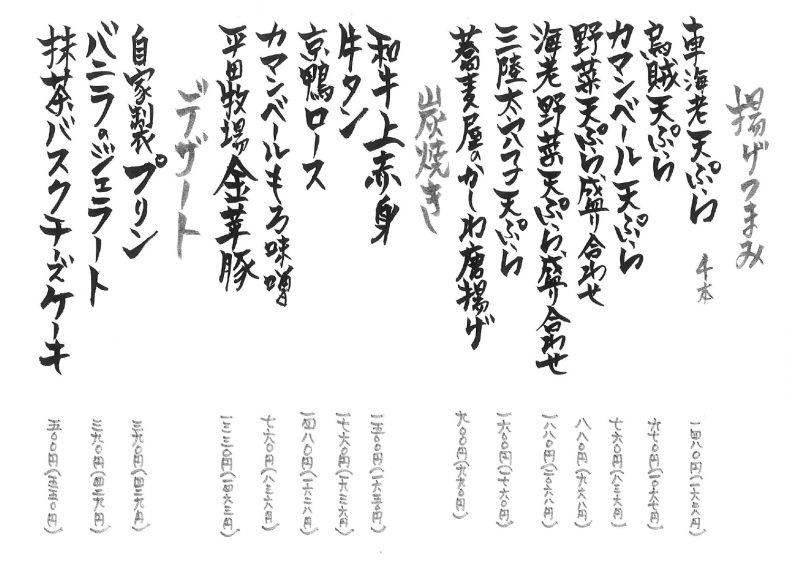 揚げつまみ
車海老天ぷら 4本 一四八〇円(一六二八円)
烏賊天ぷら 九七〇円(一〇六七円)
カマンベール天ぷら 七六〇円(八三六円)
野菜天ぷら盛り合わせ 八八〇円(九六八円)
海老野菜天ぷら盛り合わせ 一八八〇円(二〇六八円)
三陸太穴子天ぷら 一六〇〇円(一七六〇円)
蕎麦屋のかしわ唐揚げ 九〇〇円(九九〇円)
炭焼き
和牛上赤身 一五〇〇円(一六五〇円)
牛タン 一七六〇円(一九三六円)
京鴨ロース 一四八〇円(一六二八円)
カマンベールもろ味噌 七六〇円(八三六円)
平田牧場金華豚 一三三〇円(一四六三円)
デザート
自家製プリン 三九〇円(四二九円)
バニラのジェラート 三九〇円(四二九円)
抹茶バスクチーズケーキ 五〇〇円(五五〇円)